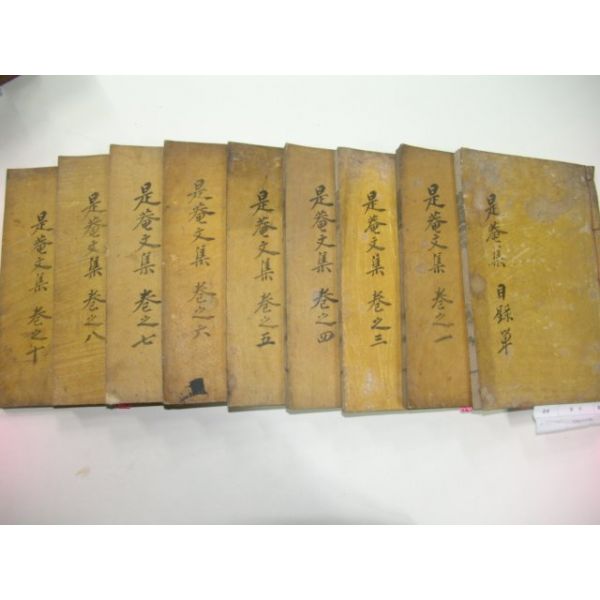 是菴集 目録單
是菴文集 卷之一
是菴文集 卷之三
是菴文集 卷之四
是菴文集 卷之五
是菴文集 卷之六
是菴文集 卷之七
是菴文集 卷之八
是菴文集 卷之十